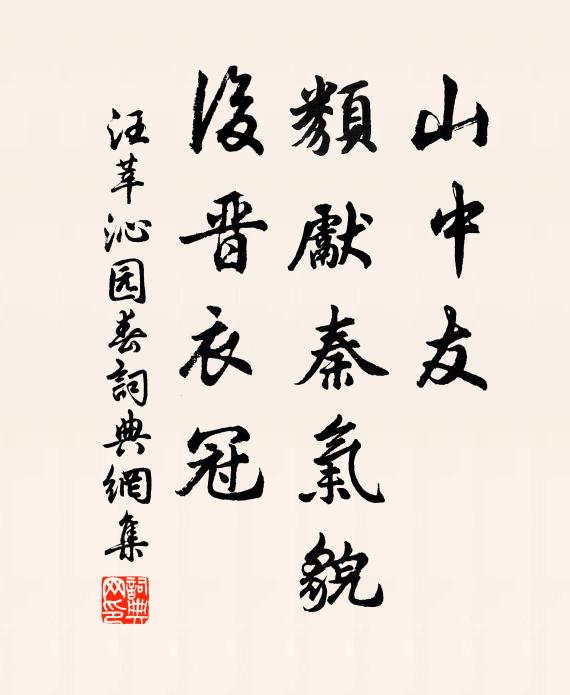 山中友
類獻秦氣貌
後晋衣冠
汪莘沁园春詞典網集
詞典
网印